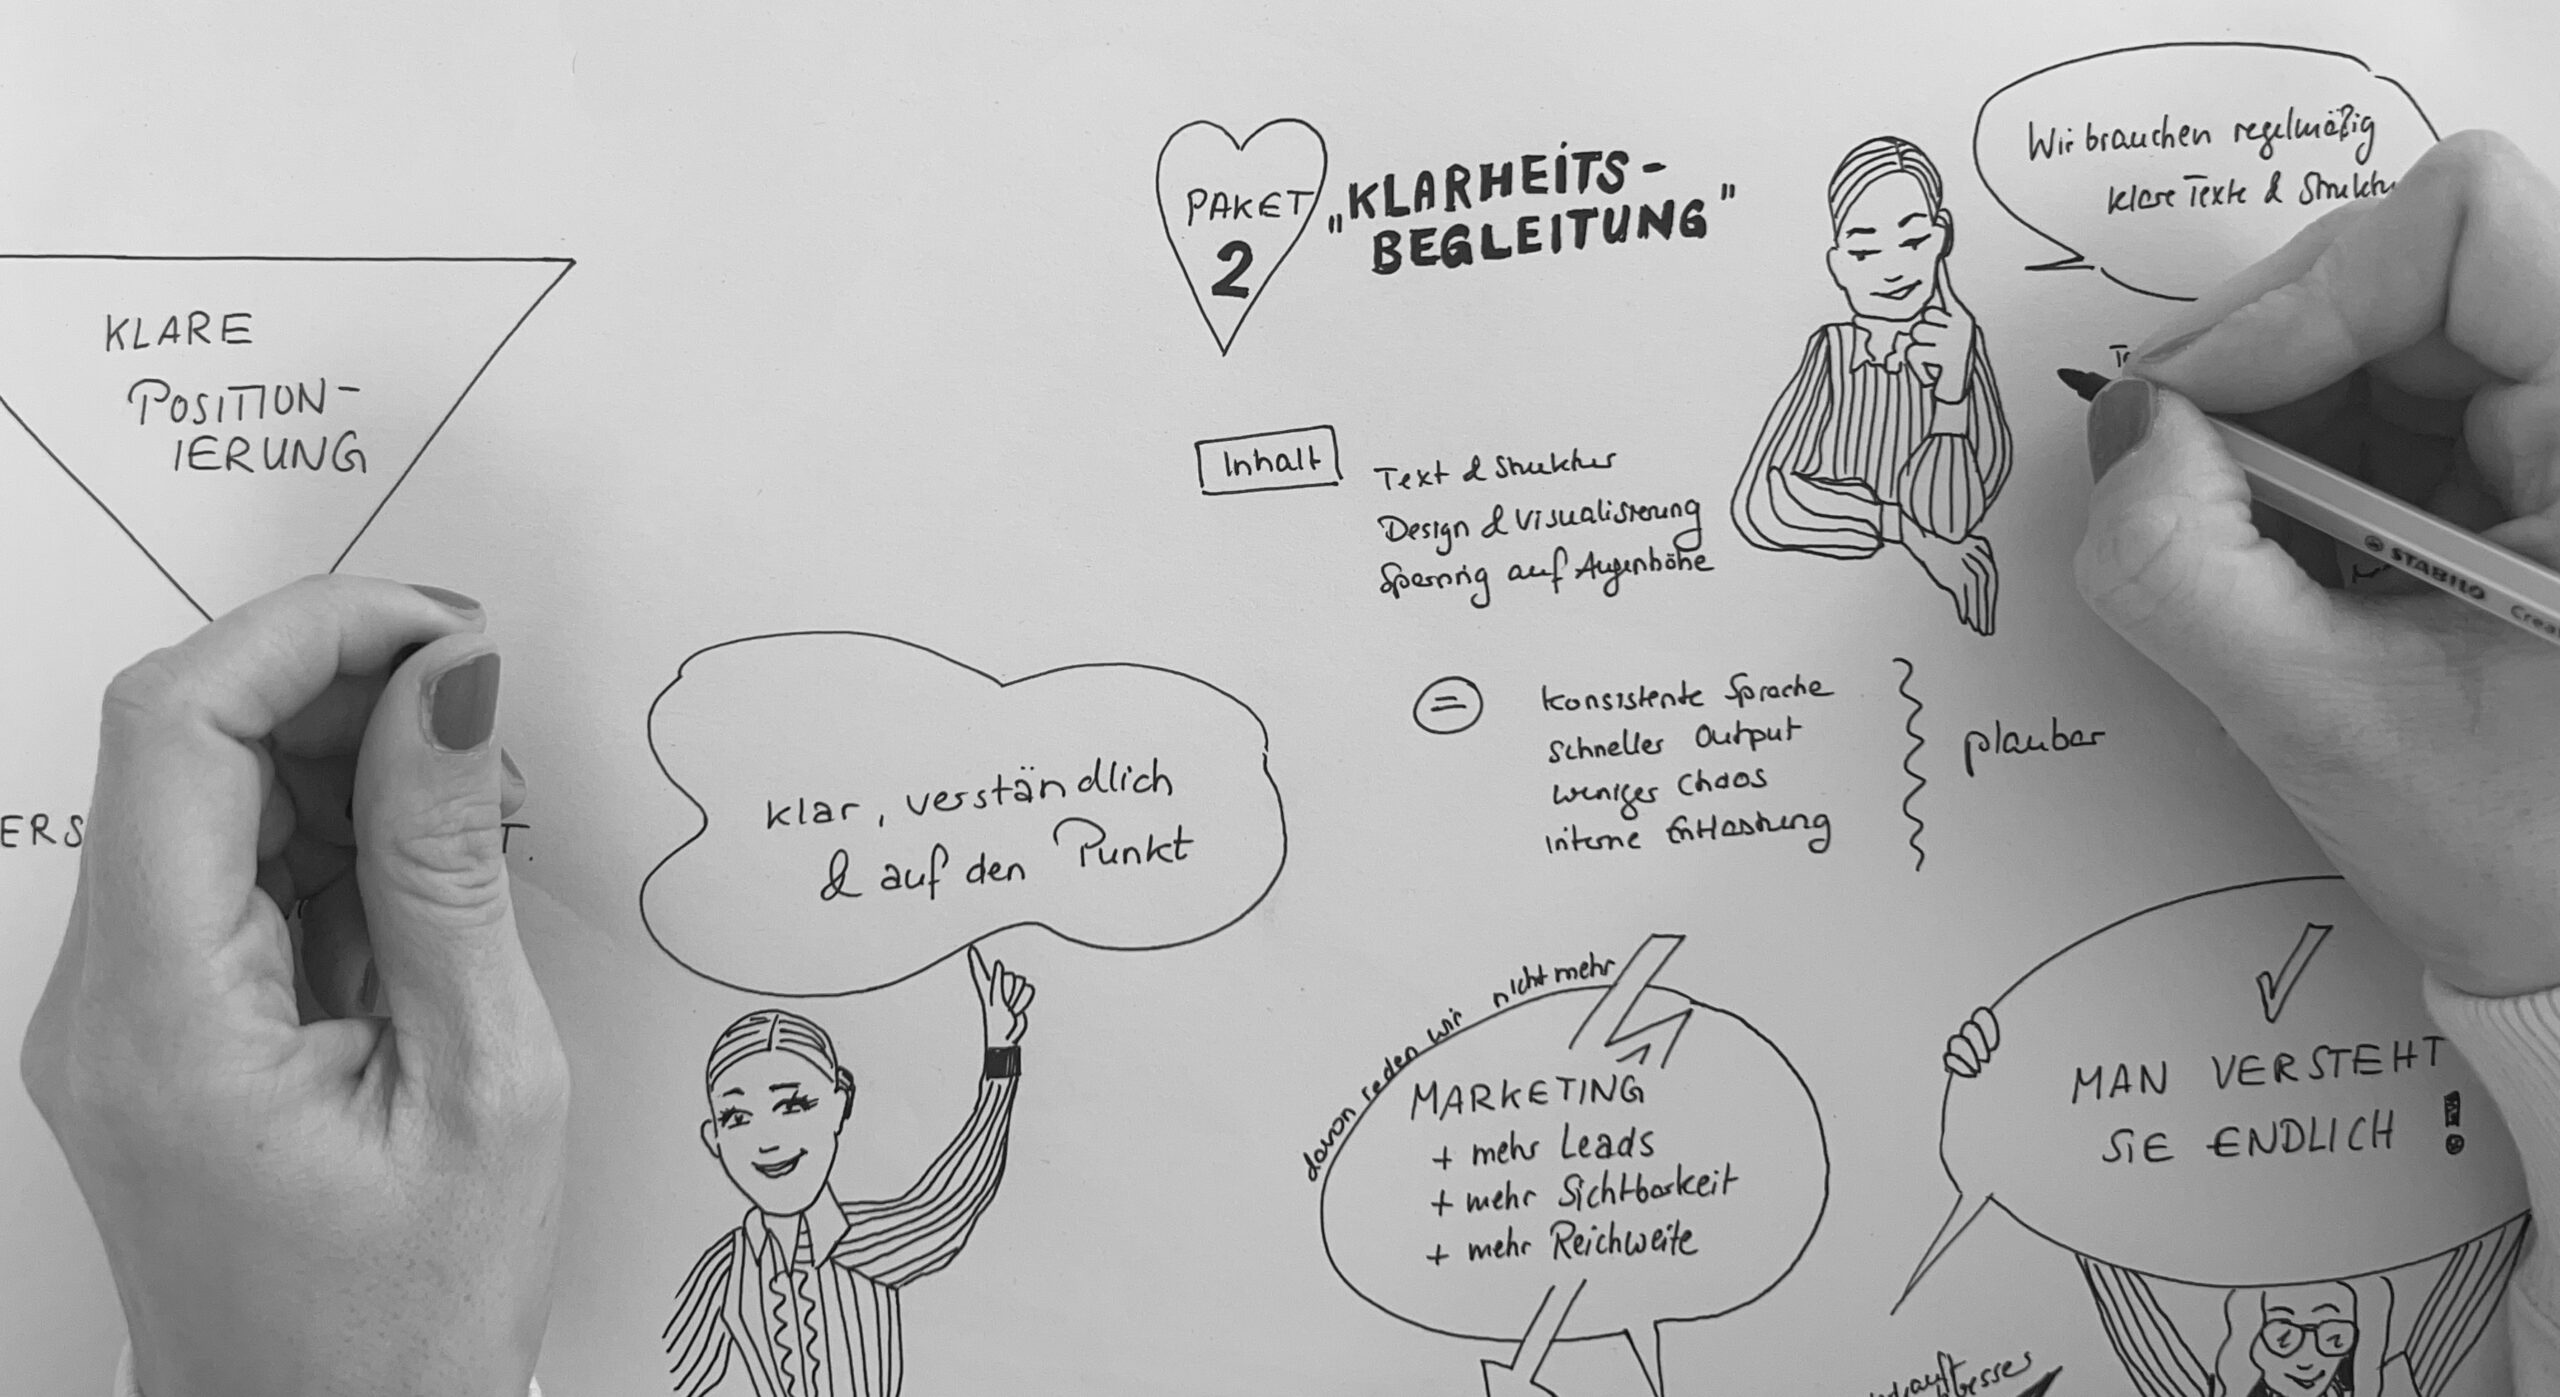 KLARE
POSITION-
IERUNG
ERS
T.
PAKET
2
„KLARHEITS-
BEGLEITUNG"
Wir brauchen regelmäßig
klare Texte & Struktu
Inhalt
Text & Struktur
Design & Visualisierung
Sparring auf Augenhöhe
=
konsistente Sprache
schneller Output
weniger Chaos
interne Entlastung
planbar
klar, verständlich
& auf den Punkt
davon reden wir nicht mehr
MARKETING
+ mehr Leads
+ mehr Sichtbarkeit
+ mehr Reichweite
MAN VERSTEHT
SIE ENDLICH !
STABILO